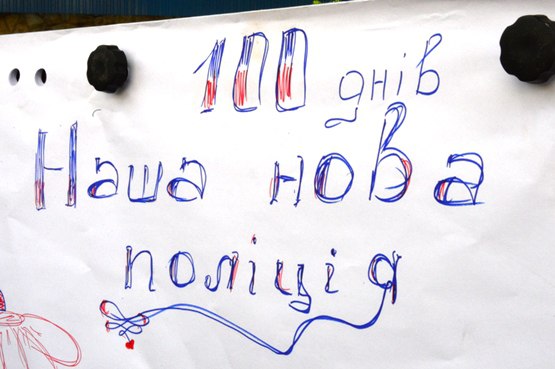 100 днів
Наша нова
поліція